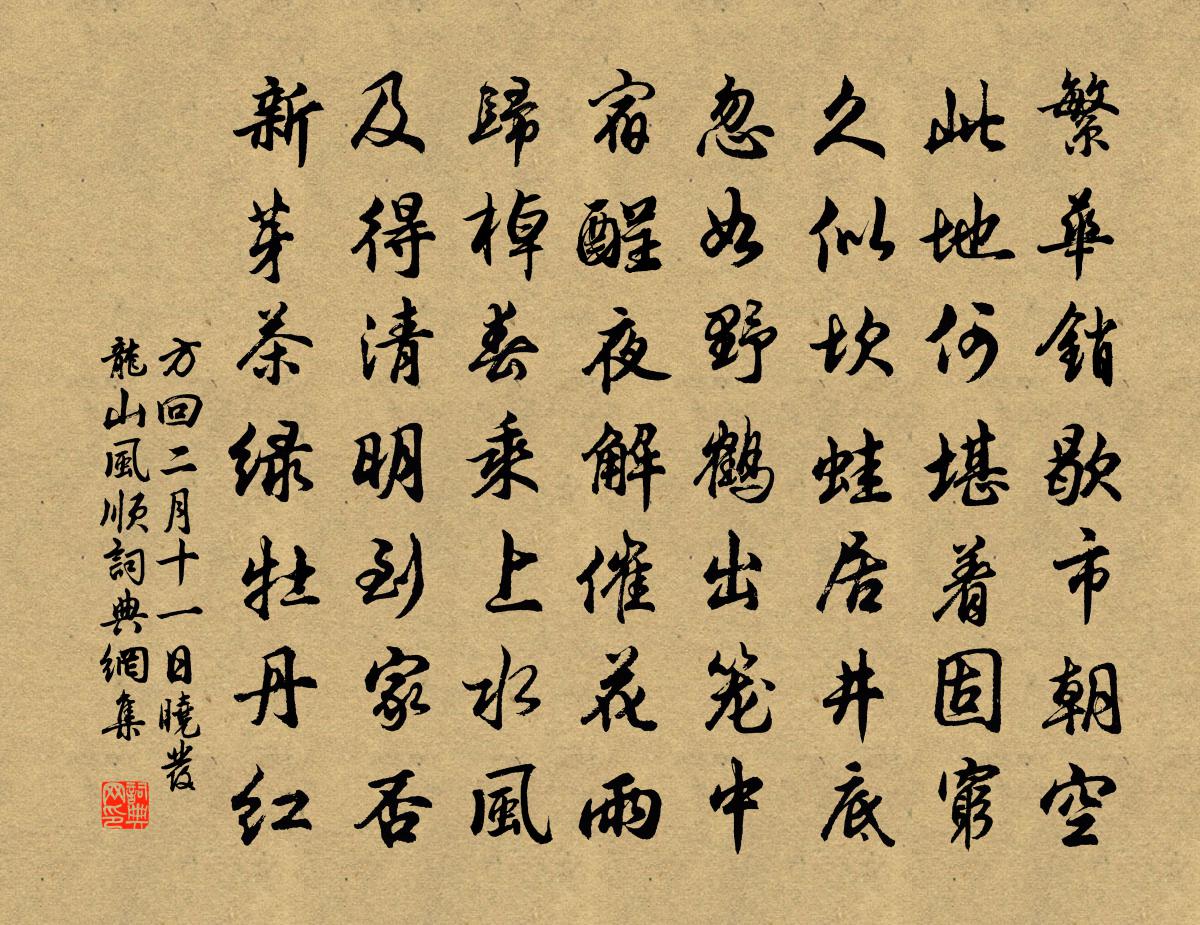 繁華銷歇市朝空
此地何堪着固窮
久似坎蛙居井底
忽如野鶴出笼中
宿酲夜解催花雨
歸棹春乘上水風
及得清明到家否
新芽茶緑牡丹红
方回二月十一日曉發
龍山風順詞典網集
詞典
网印